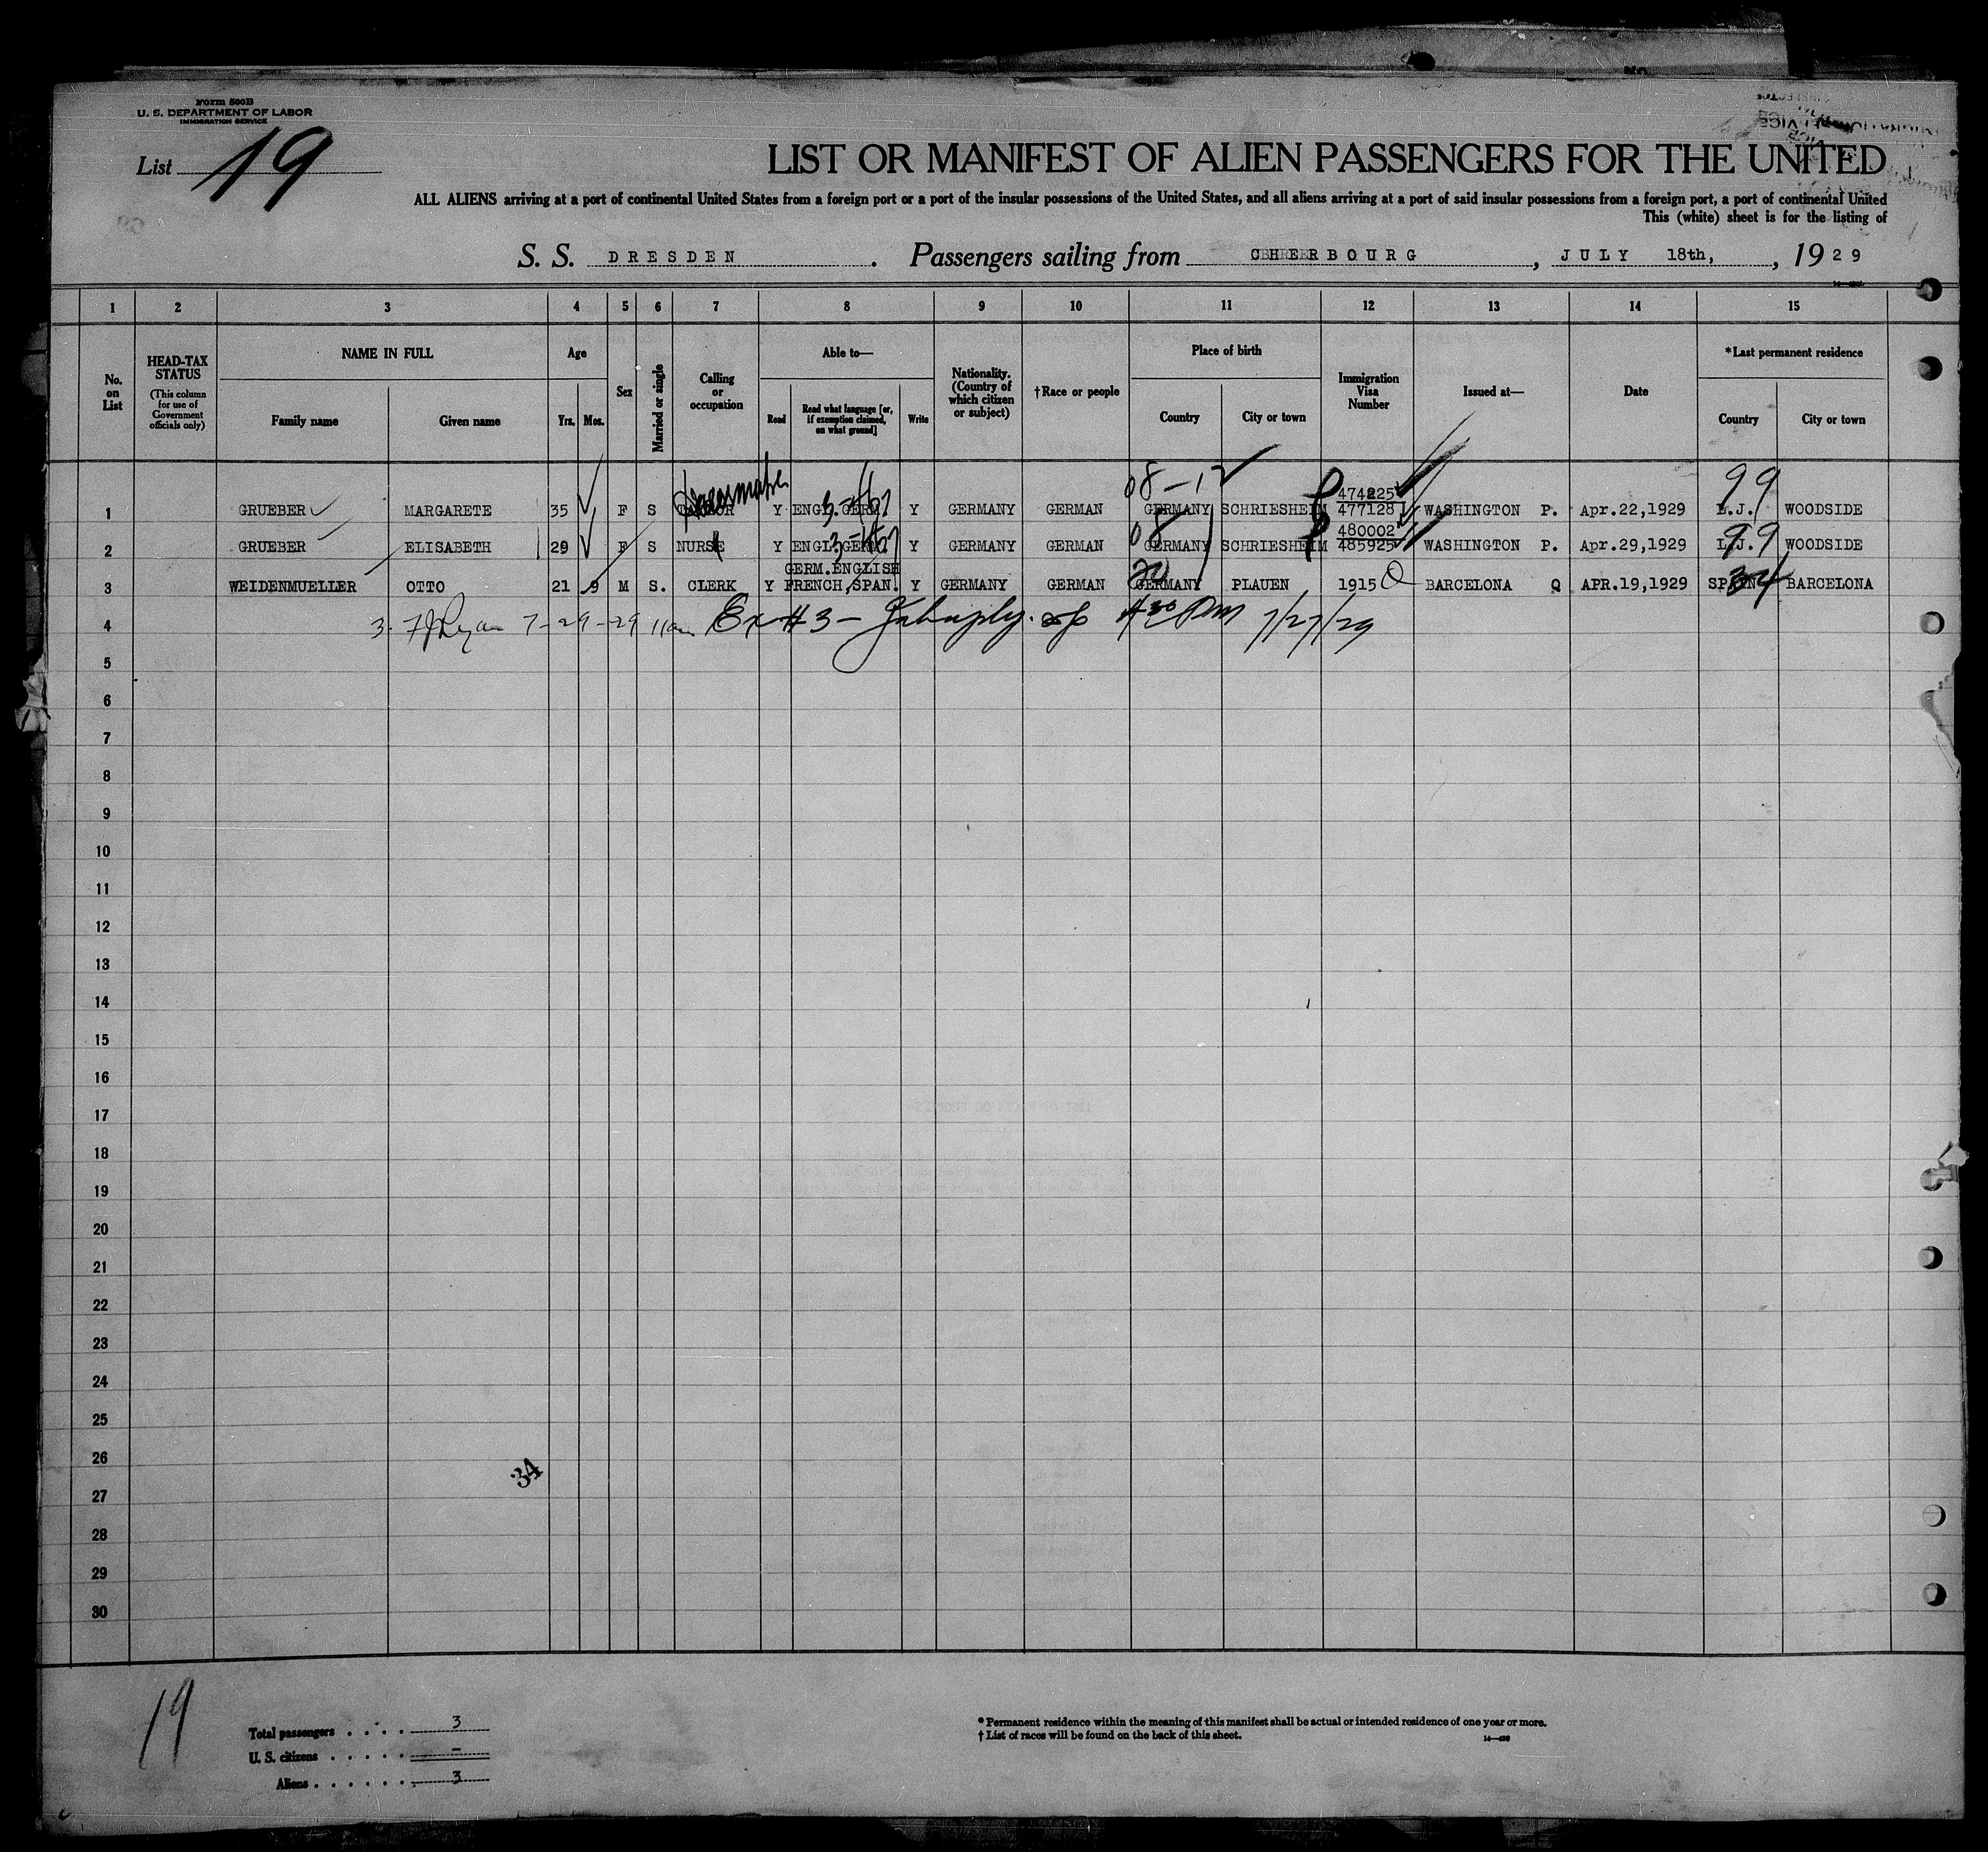 Form 500B
U. S. DEPARTMENT OF LABOR
IMMIGRATION SERVICE
List 19
LIST OR MANIFEST OF ALIEN PASSENGERS FOR THE UNITED
ALL ALIENS arriving at a port of continental United States from a foreign port or a port of the insular possessions of the United States, and all aliens arriving at a port of said insular possessions from a foreign port, a port of continental United
This (white) sheet is for the listing of
S. S. DRESDEN . Passengers sailing from CHERBOURG , JULY 18th, , 1929
1 2 3 4 5 6 7 8 9 10 11 12 13 14 15
No. on List
HEAD-TAX STATUS
(This column for use of Government officials only)
NAME IN FULL
Family name Given name
Age
Yrs. Mos.
Sex
Married or single
Calling or occupation
Able to—
Read Read what language [or, if exemption claimed, on what ground] Write
Nationality. (Country of which citizen or subject)
†Race or people
Place of birth
Country City or town
Immigration Visa Number
Issued at—
Date
*Last permanent residence
Country City or town
08-12 474225 99
1 GRUEBER MARGARETE 35 F S Y ENGL.GERM. 3-4/67 Y GERMANY GERMAN GERMANY SCHRIESHEIM 477128 WASHINGTON P. Apr.22,1929 L.J. WOODSIDE
08 480002 99
2 GRUEBER ELISABETH 29 F S NURSE Y ENGL.GERM. Y GERMANY GERMAN GERMANY SCHRIESHEIM 485925 WASHINGTON P. Apr.29,1929 L.J. WOODSIDE
GERM.ENGLISH 20 34
3 WEIDENMUELLER OTTO 21 9 M S. CLERK Y FRENCH,SPAN. Y GERMANY GERMAN GERMANY PLAUEN 1915 Q BARCELONA Q APR.19,1929 SPAIN BARCELONA
4 3. FJRyan 7-29-29 11am Ex #3 - 4 30 PM 7/27/29
5
6
7
8
9
10
11
12
13
14
15
16
17
18
19
20
21
22
23
24
25
26
34
27
28
29
30
19
Total passengers . . . . 3
U. S. citizens . . . . . -
Aliens . . . . . . . 3
* Permanent residence within the meaning of this manifest shall be actual or intended residence of one year or more.
† List of races will be found on the back of this sheet.